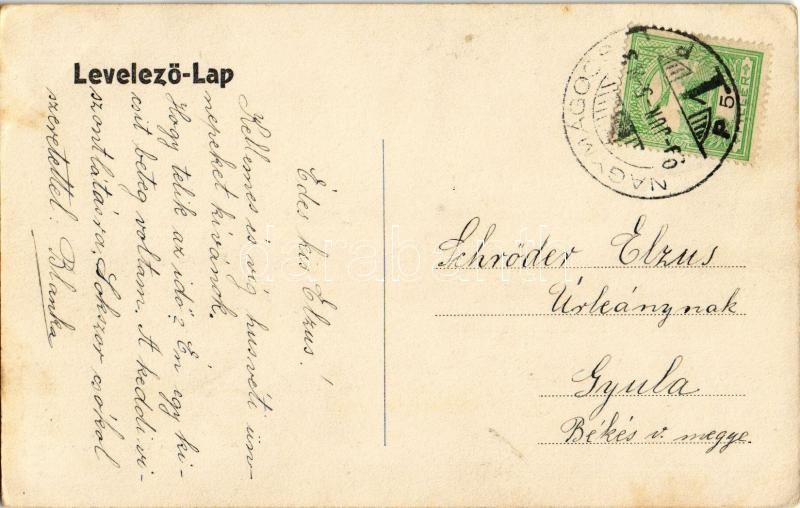 Levelező-Lap
Édes kis Elzus!
Kellemes és víg husvéti ün-
nepeket kívánok.
Hogy telik az idő? Én egy ki-
csit beteg voltam. A keddi vi-
szontlátásra, Sokszor csókol
szeretettel: Blanka
NAGYMÁGOCS
Schröder Elzus
Úrleánynak
Gyula
Békés v. megye.
darabanth